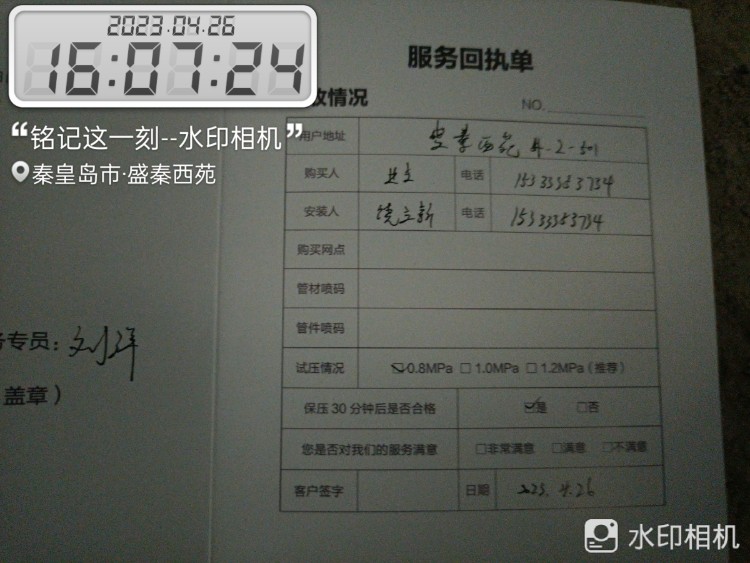 2023.04.26
16:07:24
“铭记这一刻--水印相机”
秦皇岛市·盛秦西苑
服务回执单
情况
NO.
用户地址 盛秦西苑 4-2-501
购买人 电话 15333353734
安装人 饶立新 电话 15333353734
购买网点
管材喷码
管件喷码
试压情况 ☑0.8MPa □1.0MPa □1.2MPa(推荐)
保压30分钟后是否合格 ☑是 □否
您是否对我们的服务满意 □非常满意 □满意 □不满意
客户签字 日期 2023.4.26
务专员：刘洋
盖章）
水印相机